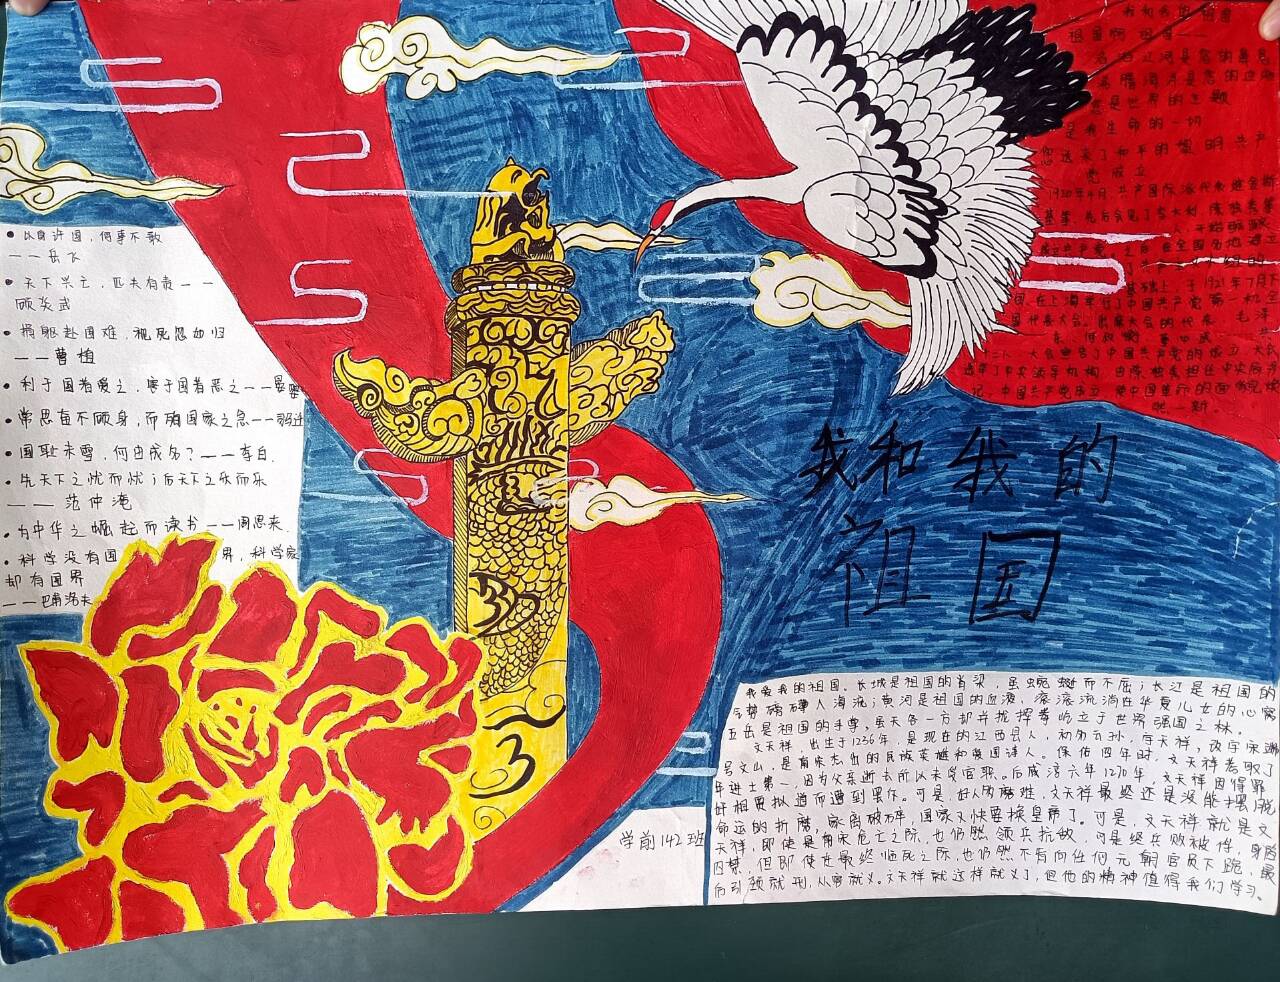 • 以身许国，何事不敢
——岳飞
• 天下兴亡，匹夫有责——
顾炎武
• 捐躯赴国难，视死忽如归
——曹植
• 利于国者爱之，害于国者恶之——晏婴
• 常思奋不顾身，而殉国家之急——司马迁
• 国耻未雪，何由成名？——李白.
• 先天下之忧而忧，后天下之乐而乐
——范仲淹
• 为中华之崛起而读书——周恩来.
• 科学没有国 界，科学家
却有国界
——巴甫洛夫
我和我的祖国
祖国啊 祖国——
您是世界的主题
是我生命的一切
您送来了和平的 明 共产
党成立
1920年4月，共产国际派代表维金斯
基 先后会见了李大钊 陈独秀
基础上，于1921年7月
在上海举行了中国共产党 第一 全
国代表大会。出席大会的代表 毛泽
东、何叔衡 董必武
十二人 大会宣告了中国共产党的成立 大会
选举了中央领导机构 由陈独秀担任中央局书
记，中国共产党成立 使中国革命的面貌焕
然一新。
我和我的
祖国
我爱我的祖国。长城是祖国的脊梁 虽蜿蜒而不屈；长江是祖国的
气势磅礴 入海流；黄河是祖国的血液，滚滚流淌在华夏儿女的心窝
五岳是祖国的手臂，虽天各一方却并拢挥拳屹立于世界强国之林。
文天祥，出生于1236年，是现在的江西 人，初名云孙，字天祥，改字宋瑞
号文山，是南宋杰出的民族英雄和爱国诗人。保佑四年时，文天祥考取了
年进士第一，因为父亲逝去所以未受官职。后咸淳六年1270年，文天祥因得罪
奸相贾拟道而遭到罢休。可是，好人的磨难，文天祥最终还是没能摆脱
命运的折磨 家离破碎，国家又快要换皇帝了。可是，文天祥就是文
天祥，即使是南宋危亡之际，也仍然领兵抗敌，可是终兵败被俘，身陷
囚禁，但即使在最终临死之际，也仍然不肯向任何元朝官员下跪，最
后引颈就刑，从容就义。文天祥就这样就义了，但他的精神值得我们学习。
学前142班